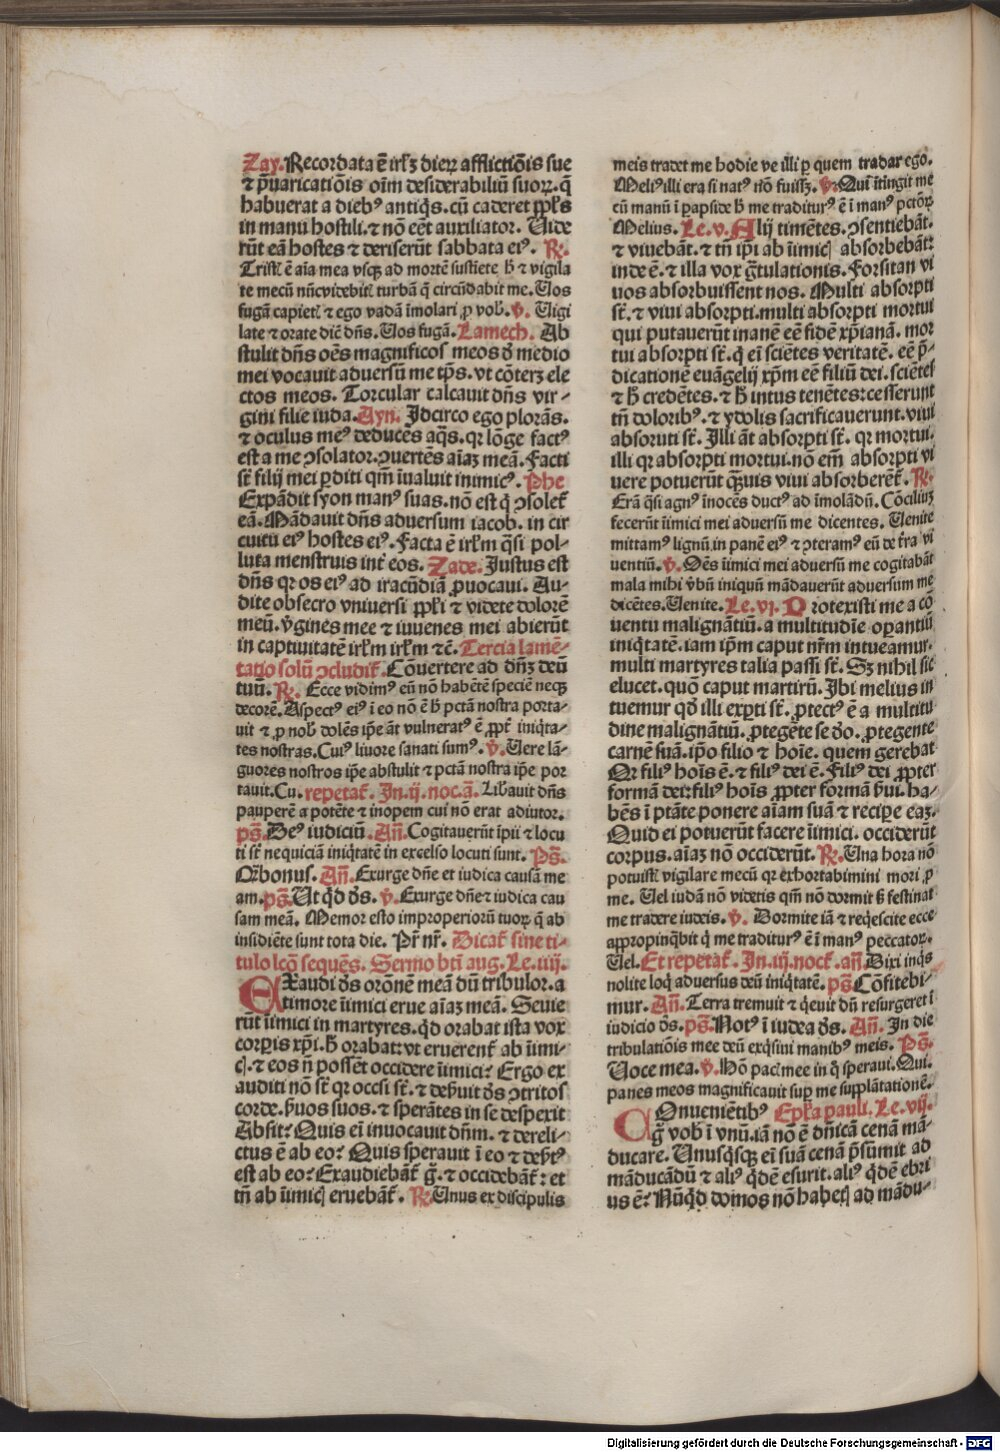 Zay. Recordata ē irl'ꝫ dierꝝ afflictiōis sue
⁊ p̄uaricatiōis oīm desiderabiliū suorꝝ. q̄
habuerat a diebꝰ antiq̇s. cū caderet ppl's
in manu hostili. ⁊ nō eēt auxiliator. Uide
rūt eā hostes ⁊ deriserūt sabbata eiꝰ. R̷.
Tristꝭ ē aīa mea vsqꝫ ad mortē sustiete h̄ ⁊ vigila
te mecū nūc videbitꝭ turbā q̄ circūdabit me. Uos
fugā capietꝭ ⁊ ego vadā īmolari ꝓ vobꝭ. v̄. Uigi
late ⁊ orate diē dn̄s. Uos fugā. Lamech. Ab
stulit dn̄s oēs magnificos meos ď medio
mei vocauit aduersū me tp̄s. vt cōterꝫ ele
ctos meos. Torcular calcauit dn̄s vir⸗
gini filie iuda. Ayn. Idcirco ego plorās.
⁊ oculus meꝰ deducēs aq̄s. qꝛ lōge factꝰ
est a me ꝯsolator. ꝯuertēs aīaꝫ meā. Facti
st̄ filij mei ꝑditi qm̄ īualuit inimicꝰ. Phe
Expādit syon manꝰ suas. nō est q̇ ꝯsolet᷑
eā. Mādauit dn̄s aduersum iacob. in cir
cuitu eiꝰ hostes eiꝰ. Facta ē irl'm q̄si pol⸗
luta menstruis int̄ eos. Zade. Iustus est
dn̄s qꝛ os eiꝰ ad iracūdiā ꝓuocaui. Au⸗
dite obsecro vniuersi ppl'i ⁊ videte dolorē
meū. v̄gines mee ⁊ iuuenes mei abierūt
in captiuitatē irl'm irl'm ⁊c̄. Tercia lamē⸗
tatio solū ꝯcludit᷑. Cōuertere ad dn̄ꝫ deū
tuū. R̷. Ecce vidimꝰ eū nō habētē speciē neqꝫ
decorē. Aspectꝰ eiꝰ ī eo nō ē h̄ pctā nostra porta⸗
uit ⁊ ꝓ nobꝭ dolēs ip̄e āt vulneratꝰ ē ꝓpt̄ iniq̇ta⸗
tes nostras. Cuiꝰ liuore sanati sumꝰ. v̄. Uere lā⸗
guores nostros ip̄e abstulit ⁊ pctā nostra ip̄e por
tauit. Cu. repetat᷑. In .ij. noc. a. Libauit dn̄s
pauperē a potēte ⁊ inopem cui nō erat adiutor.
ps̄. Deꝰ iudiciū. An̄. Cogitauerūt ip̄ii ⁊ locu
ti st̄ nequiciā iniq̇tatē in excelso locuti sunt. Ps̄.
Q̄ bonus. An̄. Exurge dn̄e et iudica causā me
am. ps̄. Ut q̇d ďs. v̄. Exurge dn̄e ⁊ iudica cau
sam meā. Memor esto improperiorū tuoꝝ q̄ ab
insidiēte sunt tota die. Pr̄ nr̄. Dicat᷑ sine ti⸗
tulo lcō sequēs. Sermo bt̄i aug. Le. iiij.
EXaudi ďs orōnē meā dū tribulor. a
timore īimici erue aīaꝫ meā. Seuie
rūt īimici in martyres. q̇d orabat ista vox
corꝑis xp̄i. h̄ orabat: vt eruerent᷑ ab īimi⸗
cꝭ. ⁊ eos n̄ possēt occidere īimici? Ergo ex
auditi nō st̄ qꝛ occisi st̄. ⁊ deh̄uit ďs ꝯtritos
corde. ẜuos suos. ⁊ sperātes in se despexit
Absit? Quis eī inuocauit dn̄m. ⁊ dereli⸗
ctus ē ab eo? Quis sperauit ī eo ⁊ deẜtꝰ
est ab eo? Exaudiebāt᷑ g̊. ⁊ occidebāt᷑: et
tn̄ ab īimicꝭ eruebāt᷑. R̷. Unus ex discipulis
meis tradet me hodie ve illi ꝑ quem tradar ego.
Meliꝰ illi era si natꝰ nō fuissꝫ. v̄. Qui ītingit me
cū manū ī papside h̄ me traditurꝰ ē ī manꝰ pctōꝝ
Melius. Le. v. Alij timētes. ꝯsentiebāt.
⁊ viuebāt. ⁊ tn̄ ip̄i ab īimicꝭ absorbebāt:
inde ē. ⁊ illa vox g̊tulationis. Forsitan vi
uos absorbuissent nos. Multi absorpti
st̄. ⁊ viui absorpti. multi absorpti mortui
qui putauerūt inanē eē fidē xp̄ianā. mor
tui absorpti st̄. q̇ eī sciētes veritatē. eē p̄⸗
dicationē euāgelij xp̄m eē filiū dei. sciētes
⁊ h̄ credētes. ⁊ h̄ intus tenētes: cesserunt
tn̄ doloribꝰ. ⁊ ydolis sacrificauerunt. viui
absoruti st̄. Illi āt absorpti st̄. qꝛ mortui.
illi qꝛ absorpti mortui. nō em̄ absorpti vi
uere potuerūt q̄ꝫuis viui absorberēt᷑. R̷.
Erā q̄si agnꝰ inocēs ductꝰ ad īmolādū. Cōciliuꝫ
fecerūt īimici mei aduersū me dicentes. Uenite
mittamꝰ lignū in panē eiꝰ ⁊ ꝯteramꝰ eū de t̄ra vi
uentiū. v̄. Oēs īimici mei aduersū me cogitabāt
mala mihi ꝟbū iniquū mādauerūt aduersum me
dicētes. Uenite. Le. vj. Protexisti me a cō
uentu malignātiū. a multitudīe oꝑantiū
iniq̇tatē. iam ip̄m caput nr̄m intueamur.
multi martyres talia passi st̄. Sꝫ nihil sic
elucet. quō caput martirū. Ibi melius in
tuemur qd̄ illi exꝑti st̄. ꝓtectꝰ ē a multitu
dine malignātiū. ꝓtegēte se ďo. ꝓtegente
carnē suā. ip̄o filio ⁊ hoīe. quem gerebat
Qꝛ filiꝰ hoīs ē. ⁊ filiꝰ dei ē. Filiꝰ dei ꝓpter
formā dei: filiꝰ hoīs ꝓpter formā ẜui. ha⸗
bēs ī ptāte ponere aīam suā ⁊ recipe eaꝫ.
Quid ei potuerūt facere īimici. occiderūt
corpus. aīaꝫ nō occiderūt. R̷. Una hora nō
potuistꝭ vigilare mecū qꝛ exhortabimini mori ꝓ
me. Uel iudā nō videtis qm̄ nō dormit ẜ festinat
me tradere iudeis. v̄. Dormite iā ⁊ req̇escite ecce
appropinq̇bit q̇ me traditurꝰ ē ī manꝰ peccatoꝝ.
Uel. Et repetat᷑. In .iij. noct᷑. an̄. Dixi inq̇s
nolite loq̇ aduersus deū iniq̇tatē. ps̄ Cōfitebi⸗
mur. An̄. Terra tremuit ⁊ q̇euit dū resurgeret ī
iudicio ďs. ps̄. Notꝰ ī iudea ďs. An̄. In die
tribulatiōis mee deū exq̇siui manibꝰ meis. Ps̄.
Uoce mea. v̄. Hō pacꝭ mee in q̇ speraui. Qui.
panes meos magnificauit suꝑ me supplātationē.
COnuenientibꝰ Epl'a pauli. Le. vij.
g̊ vobꝭ ī vnū. iā nō ē dn̄icā cenā mā⸗
ducare. Unusq̇sqꝫ eī suā cenā p̄sumit ad
māducādū ⁊ aliꝰ q̇dē esurit. aliꝰ q̇dē ebri
us ē? Nūq̇d domos nō habetꝭ ad mādu⸗
Digitalisierung gefördert durch die Deutsche Forschungsgemeinschaft - DFG